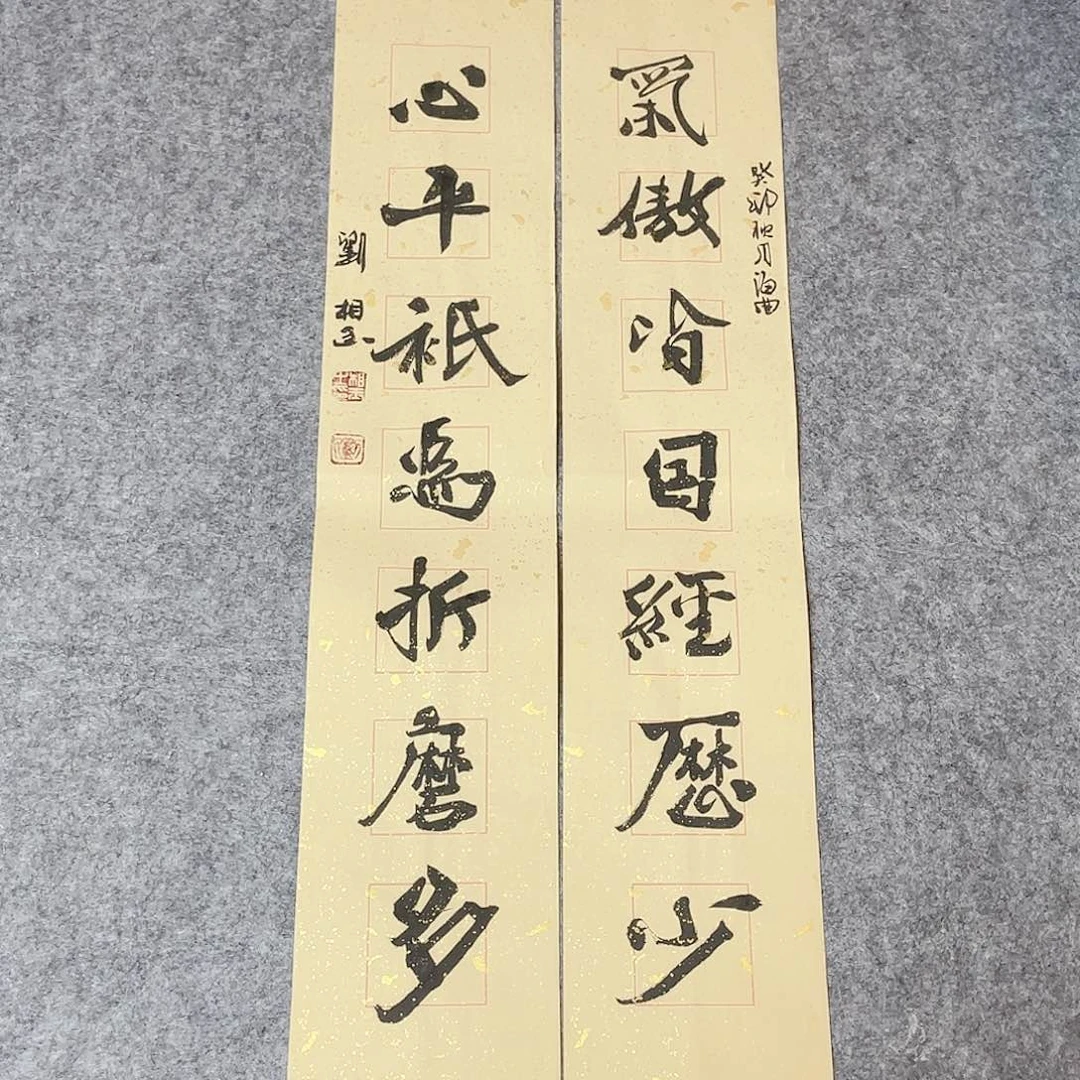 癸卯秋月海曲
氣傲皆因經歷少
心平祇為折磨多
劉相玉